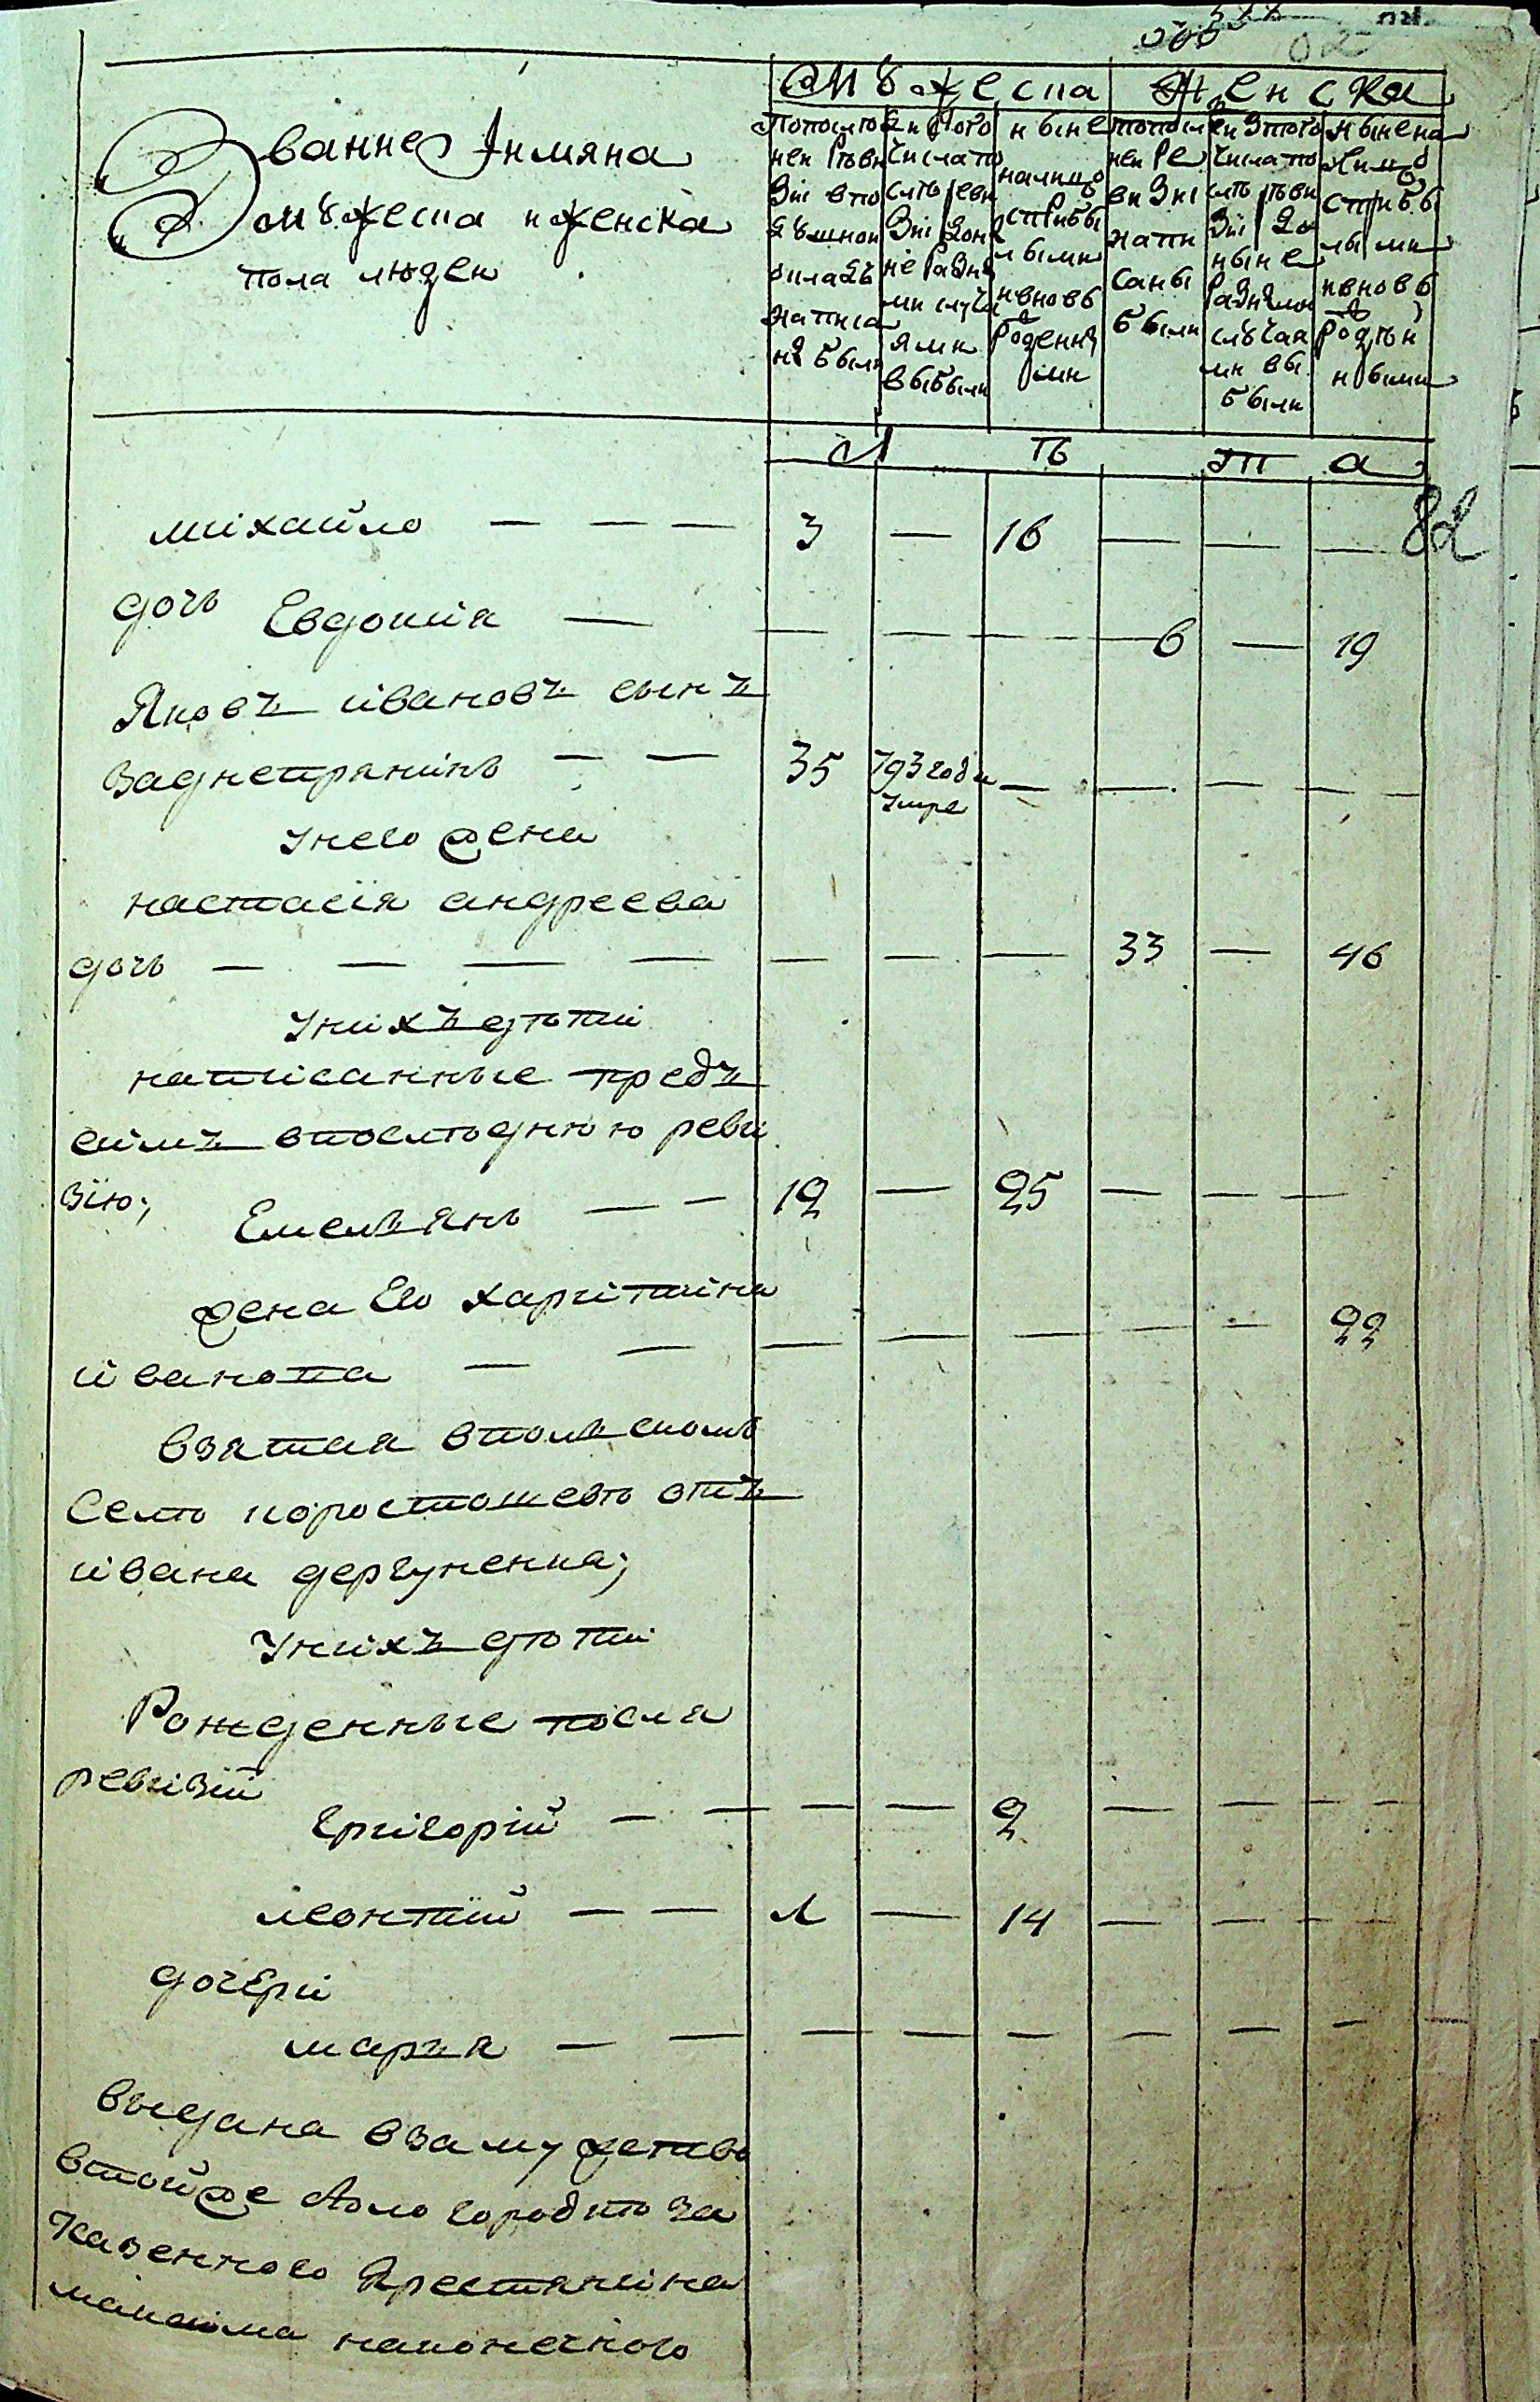 Звание Iимяна
мужеска иженска
пола людеи
Мужеска
Женска
Попослед
неи Реви
зiи впо
душнои
окладъ
написа
ны были
Изтого
числа по
слѣ Реви
зiи
разны
ми случа
ями
выбыли
ныне
налицо
сприбы
лыми
ивновь
Рожденны
ми
попослед
неи Ре
визiи
напи
саны
были
Изтого
числа по
слѣ реви
зiи до
ныне
Разными
случая
ми вы
были
ныне на
лицо
сприбы
лыми
ивновь
Рожден
ными
Л ѣ т а
82
михайло — — — 3 — 16 — — —
дочь Евдокiя — — — — 6 — 19
Яковъ ивановъ сынъ
заднепрянинъ — — 35 793 года — — — —
умре
унего жена
настасiя андреева
дочь — — — — — — — 33 — 46
унихъ дѣти
написанные предъ
симъ впослѣднюю реви
зiю;
Емельянъ — — 12 — 25 — — —
жена Его харитина
иванова — — — — — — — 22
взятая впольскомъ
Селѣ коростошевѣ отъ
ивана дергуненка;
унихъ дѣти
Рожденные посля
ревизiи
Григорiй — — — — 2 — — —
леонтiй — — 1 — 14 — — —
дочЕри
марья — — — — — — — —
выдана взамужетво
втойже городкѣ за
казенного крестянина
максима наконечного